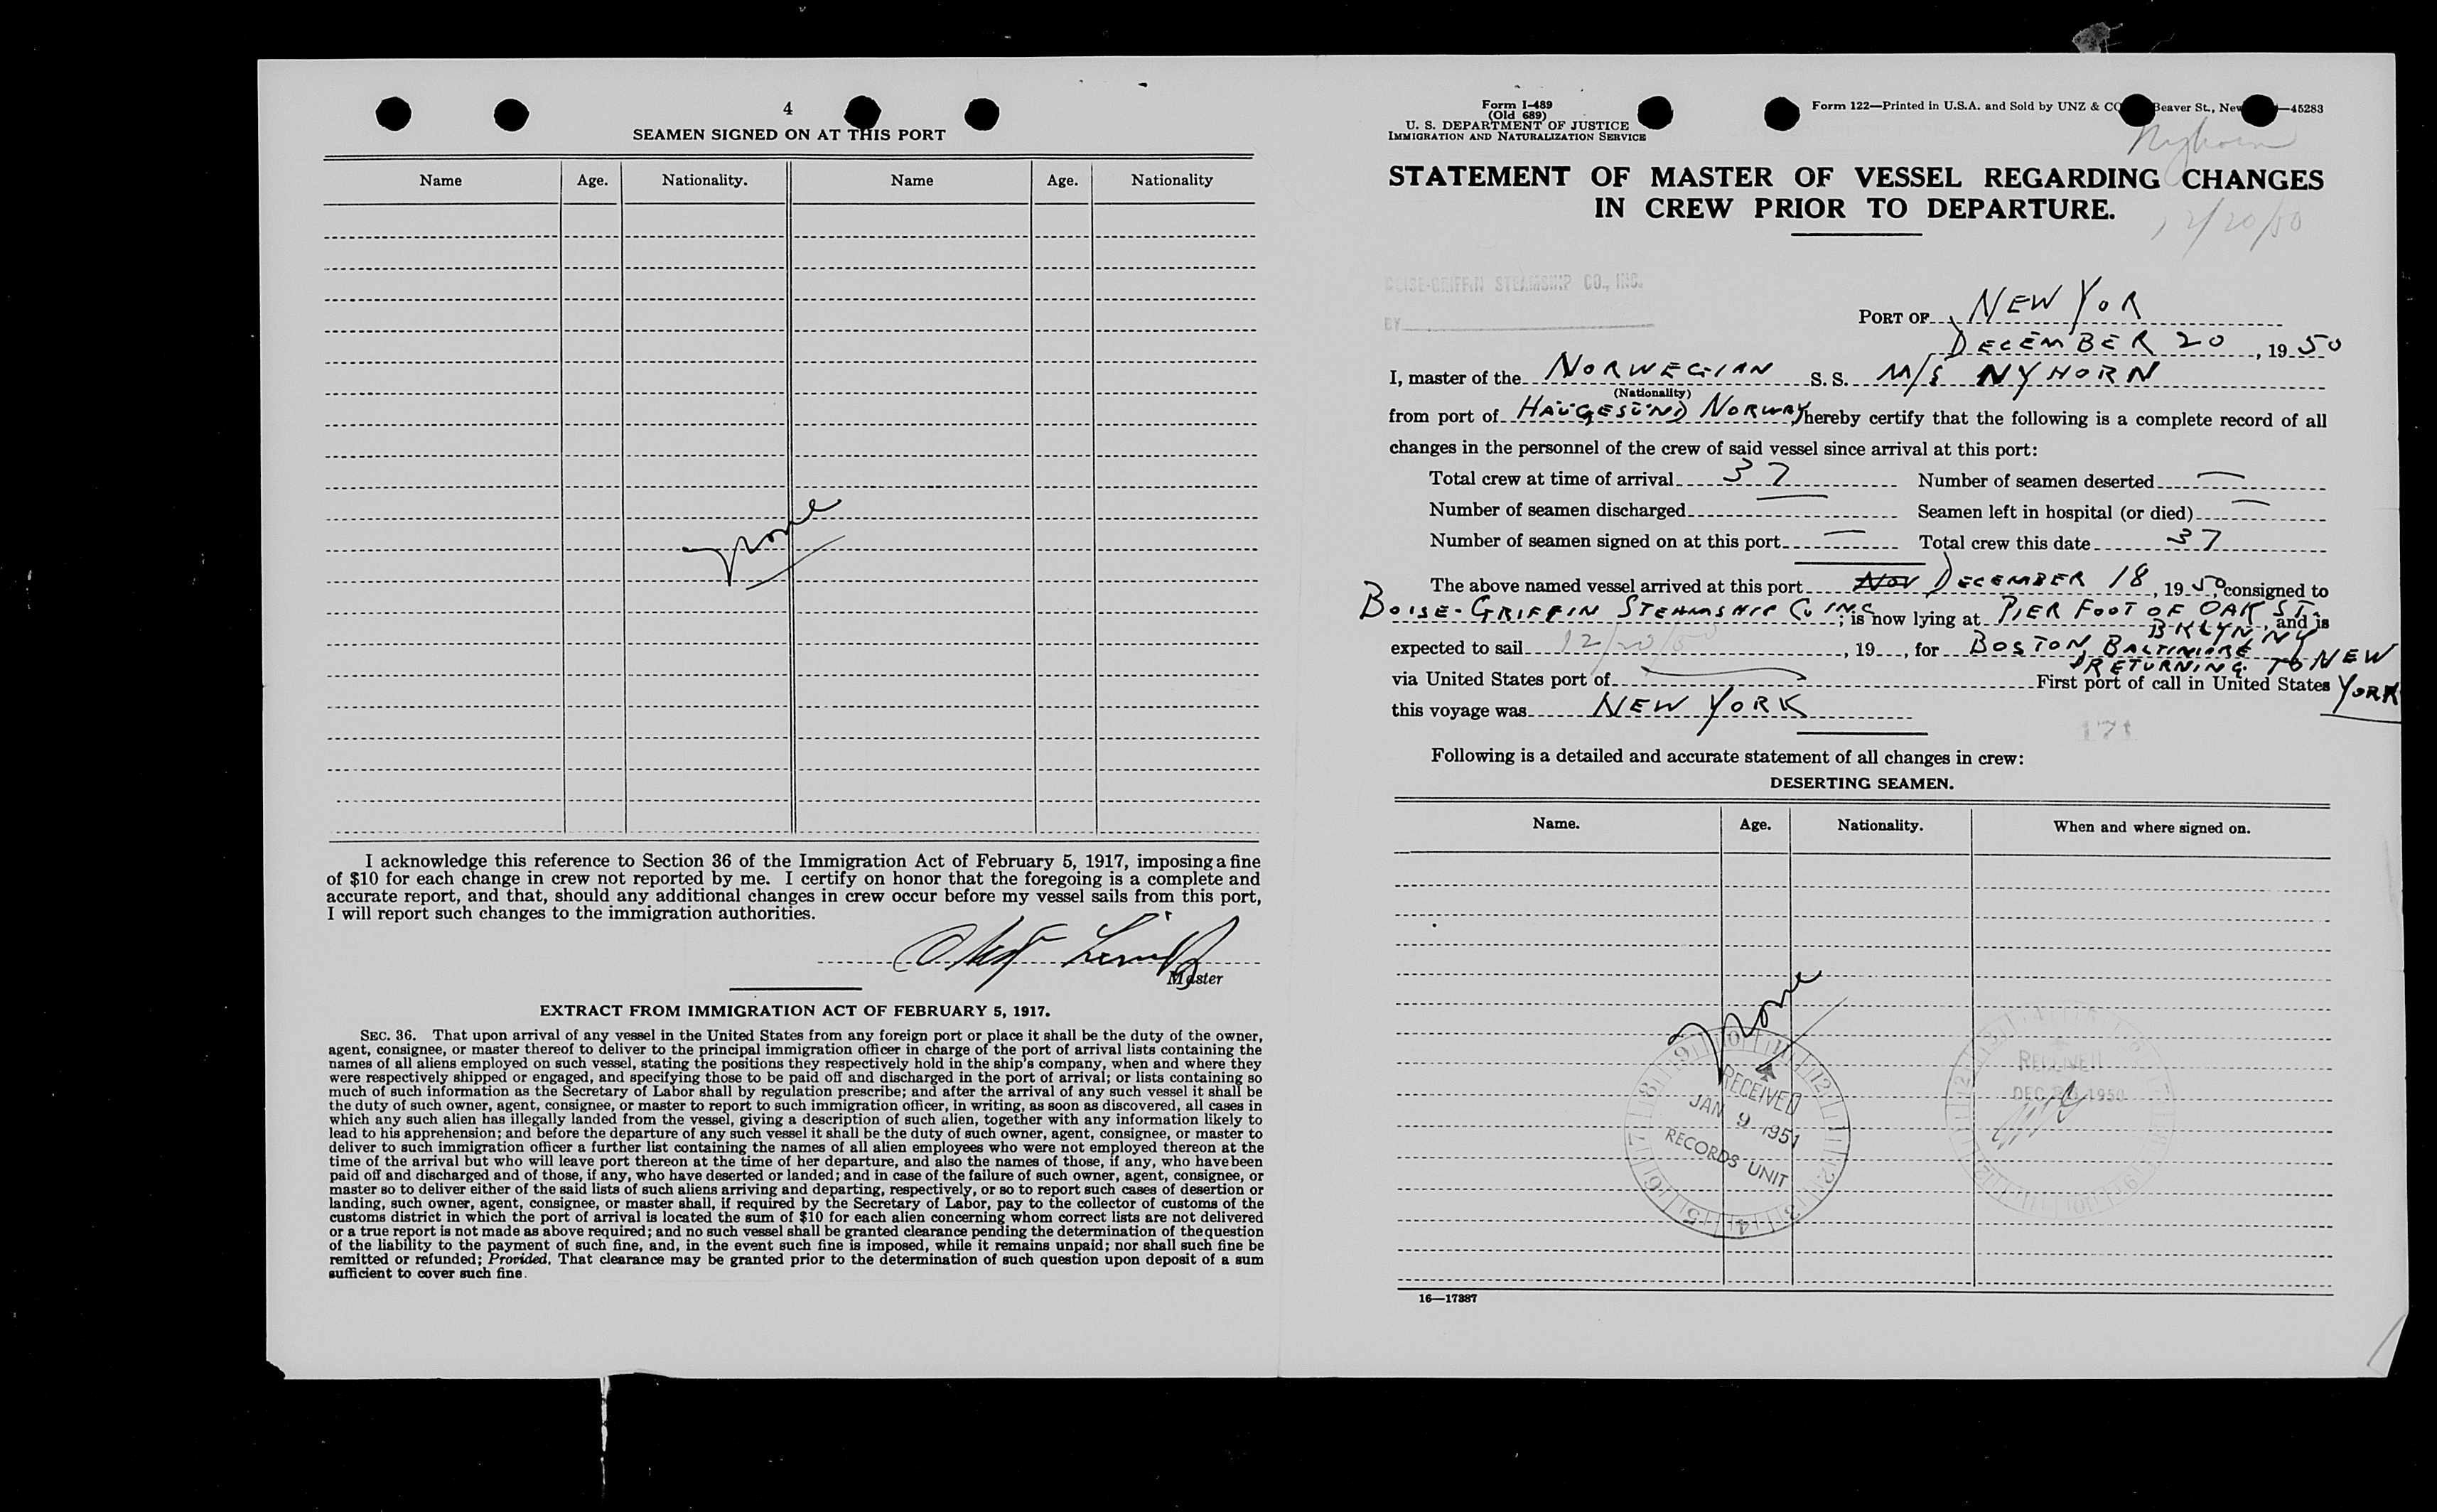 4
SEAMEN SIGNED ON AT THIS PORT
Name Age. Nationality. Name Age. Nationality
None
I acknowledge this reference to Section 36 of the Immigration Act of February 5, 1917, imposing a fine
of $10 for each change in crew not reported by me. I certify on honor that the foregoing is a complete and
accurate report, and that, should any additional changes in crew occur before my vessel sails from this port,
I will report such changes to the immigration authorities.
Master
EXTRACT FROM IMMIGRATION ACT OF FEBRUARY 5, 1917.
SEC. 36. That upon arrival of any vessel in the United States from any foreign port or place it shall be the duty of the owner,
agent, consignee, or master thereof to deliver to the principal immigration officer in charge of the port of arrival lists containing the
names of all aliens employed on such vessel, stating the positions they respectively hold in the ship's company, when and where they
were respectively shipped or engaged, and specifying those to be paid off and discharged in the port of arrival; or lists containing so
much of such information as the Secretary of Labor shall by regulation prescribe; and after the arrival of any such vessel it shall be
the duty of such owner, agent, consignee, or master to report to such immigration officer, in writing, as soon as discovered, all cases in
which any such alien has illegally landed from the vessel, giving a description of such alien, together with any information likely to
lead to his apprehension; and before the departure of any such vessel it shall be the duty of such owner, agent, consignee, or master to
deliver to such immigration officer a further list containing the names of all alien employees who were not employed thereon at the
time of the arrival but who will leave port thereon at the time of her departure, and also the names of those, if any, who have been
paid off and discharged and of those, if any, who have deserted or landed; and in case of the failure of such owner, agent, consignee, or
master so to deliver either of the said lists of such aliens arriving and departing, respectively, or so to report such cases of desertion or
landing, such owner, agent, consignee, or master shall, if required by the Secretary of Labor, pay to the collector of customs of the
customs district in which the port of arrival is located the sum of $10 for each alien concerning whom correct lists are not delivered
or a true report is not made as above required; and no such vessel shall be granted clearance pending the determination of the question
of the liability to the payment of such fine, and, in the event such fine is imposed, while it remains unpaid; nor shall such fine be
remitted or refunded; Provided, That clearance may be granted prior to the determination of such question upon deposit of a sum
sufficient to cover such fine.
Form I-489
(Old 689)
U. S. DEPARTMENT OF JUSTICE
IMMIGRATION AND NATURALIZATION SERVICE
Form 122—Printed in U.S.A. and Sold by UNZ & CO Beaver St., New —45283
Nyhorn
STATEMENT OF MASTER OF VESSEL REGARDING CHANGES
IN CREW PRIOR TO DEPARTURE.
12/20/50
BOISE-GRIFFIN STEAMSHIP CO., INC.
BY
PORT OF NEW YOR
DECEMBER 20, 1950
I, master of the NORWEGIAN S. S. M/S NYHORN
(Nationality)
from port of HAUGESUND NORWAY hereby certify that the following is a complete record of all
changes in the personnel of the crew of said vessel since arrival at this port:
Total crew at time of arrival 37 Number of seamen deserted —
Number of seamen discharged — Seamen left in hospital (or died) —
Number of seamen signed on at this port — Total crew this date 37
The above named vessel arrived at this port Nov DECEMBER 18, 1950, consigned to
BOISE-GRIFFIN STEAMSHIP Co INC; is now lying at PIER FOOT OF OAK ST., and is
BKLYN NY
expected to sail 12/20/50, 19 , for BOSTON, BALTIMORE
RETURNING TO NEW
via United States port of — First port of call in United States YORK
this voyage was NEW YORK
171
Following is a detailed and accurate statement of all changes in crew:
DESERTING SEAMEN.
Name. Age. Nationality. When and where signed on.
None
RECEIVED
JAN 9 1951
RECORDS UNIT
RECEIVED
DEC 1950
16—17387